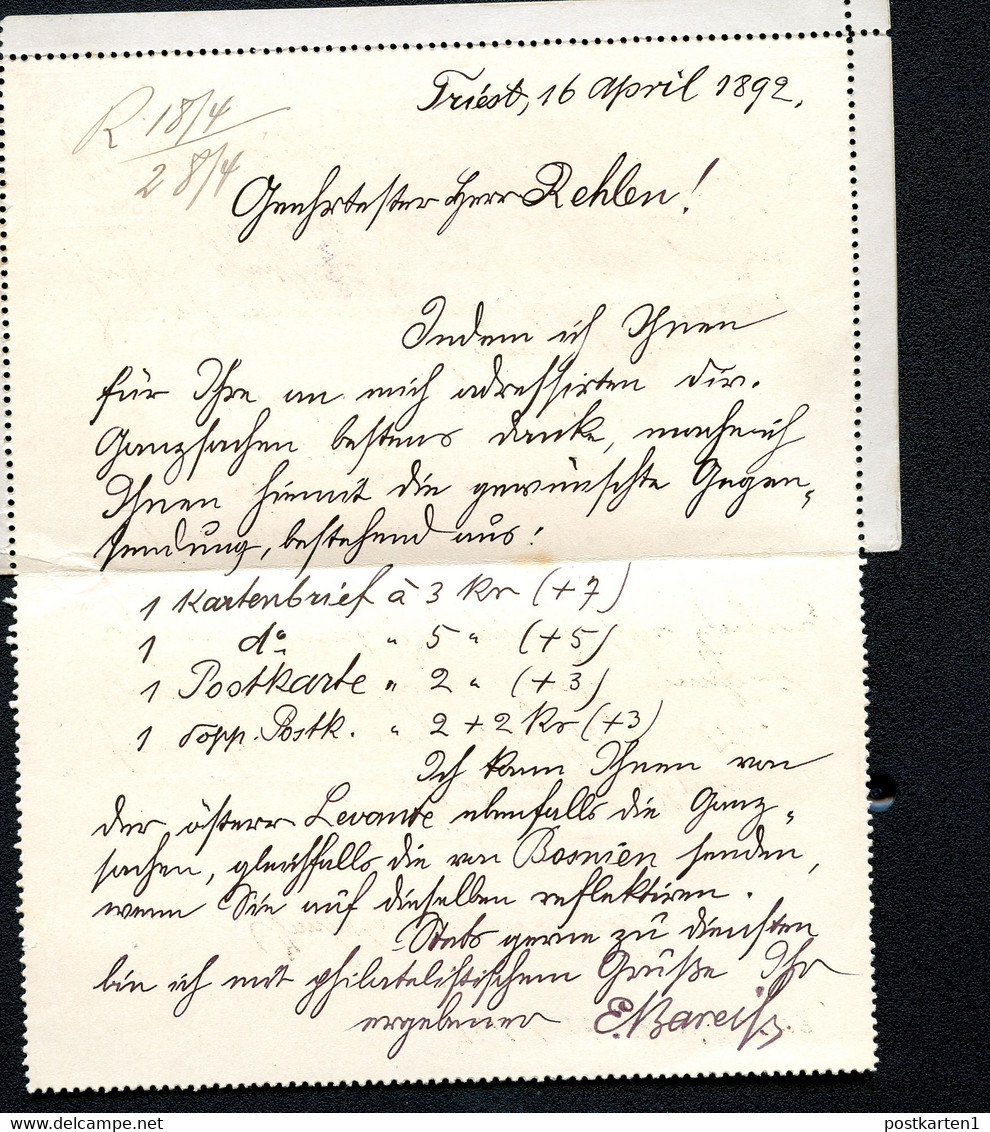 Triest, 16 April 1892.
R. 18/4
28/4
Geehrtester Herr Rehlen!
Indem ich Ihnen
für Ihre an mich adressirten div.
Ganzsachen bestens danke, mache ich
Ihnen hiemit die gewünschte Gegen-
sendung, bestehend aus:
1 Kartenbrief à 3 Kr (+7)
1 do " 5 " (+5)
1 Postkarte " 2 " (+3)
1 dopp. Postk. " 2+2 Kr (+3)
Ich kann Ihnen von
der österr Levante ebenfalls die Ganz-
sachen, gleichfalls die von Bosnien senden,
wenn Sie auf dieselben reflektiren.
Stets gerne zu Diensten
bin ich mit philatelistischem Grüße Ihr
ergebener E. Bareiß
postkarten1